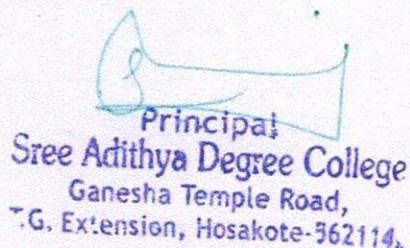 Principal
Sree Adithya Degree College
Ganesha Temple Road,
T.G. Extension, Hosakote-562114.